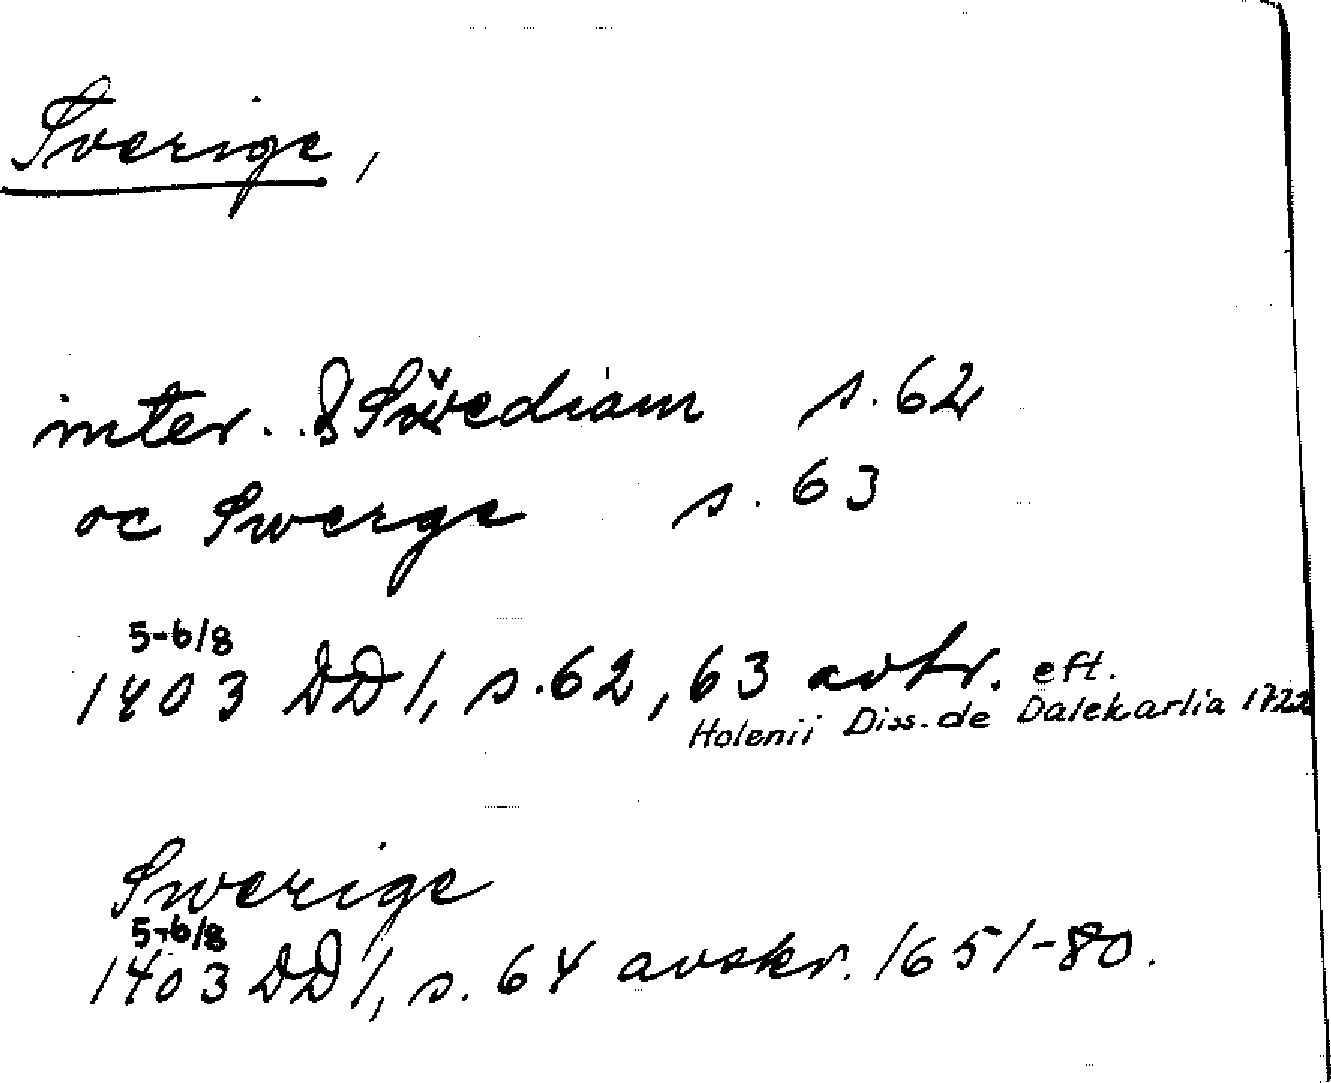 Sverige,
inter. . & Svediam s. 62
oc Swerge s. 63
5-6/8
1403 DD 1, s. 62, 63 avkr. eft.
Holenii Diss. de Dalekarlia 1722
Swerige
5-6/8
1403 DD 1, s. 64 avskr. 1651-80.